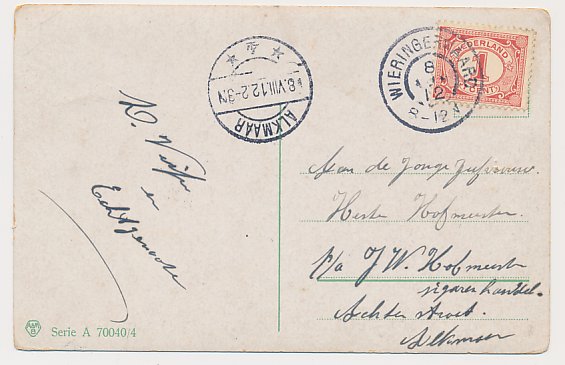 WIERINGERWAARD
8
12
8-12N
NEDERLAND
1
CENT
8.VIII.12.2-3N
ALKMAAR
K.
en
Echtgenoote
Aan de Jonge Jufvrouw.
Hester Hofmeester.
p/a J W. Hofmeester
sigarenhandel.
Achter straat.
Alkmaar
Serie A 70040/4